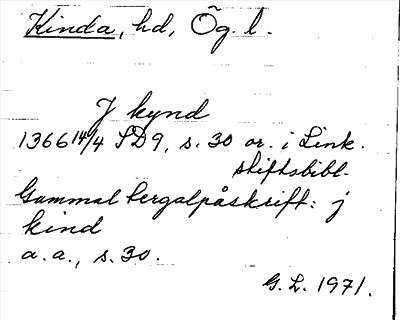 Kinda, hd, Ög. l.
J kynd
1366 14/4 SD9, s. 30 or. i Link.
stiftsbibl.
Gammal bergalpåskrift: j
kind
a. a., s. 30.
G. L. 1971.